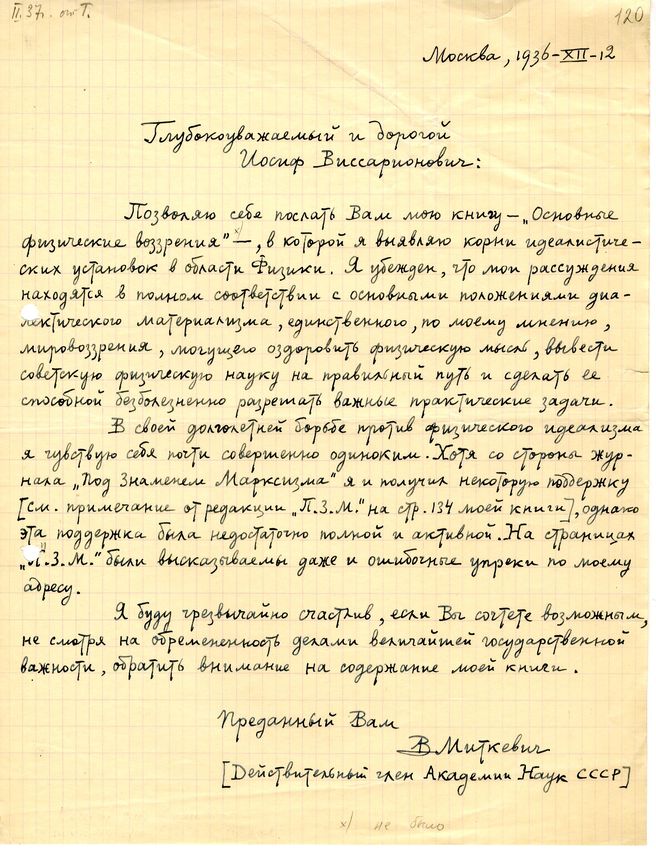 II.37г. от Т.
120
Москва, 1936-XII-12
Глубокоуважаемый и дорогой
Иосиф Виссарионович:
Позволяю себе послать Вам мою книгу – „Основные
физические воззрения" x) –, в которой я выявляю корни идеалистиче-
ских установок в области Физики. Я убежден, что мои рассуждения
находятся в полном соответствии с основными положениями диа-
лектического материализма, единственного, по моему мнению,
мировоззрения, могущего оздоровить физическую мысль, вывести
советскую физическую науку на правильный путь и сделать ее
способной безболезненно разрешать важные практические задачи.
В своей долголетней борьбе против физического идеализма
я чувствую себя почти совершенно одиноким. Хотя со стороны жур-
нала „Под Знаменем Марксизма" я и получил некоторую поддержку
[см. примечание от редакции „П.З.М." на стр. 134 моей книги], однако
эта поддержка была недостаточно полной и активной. На страницах
„П.З.М." были высказываемы даже и ошибочные упреки по моему
адресу.
Я буду чрезвычайно счастлив, если Вы сочтете возможным,
не смотря на обремененность делами величайшей государственной
важности, обратить внимание на содержание моей книги.
Преданный Вам
В Миткевич
[Действительный член Академии Наук СССР]
x) не было